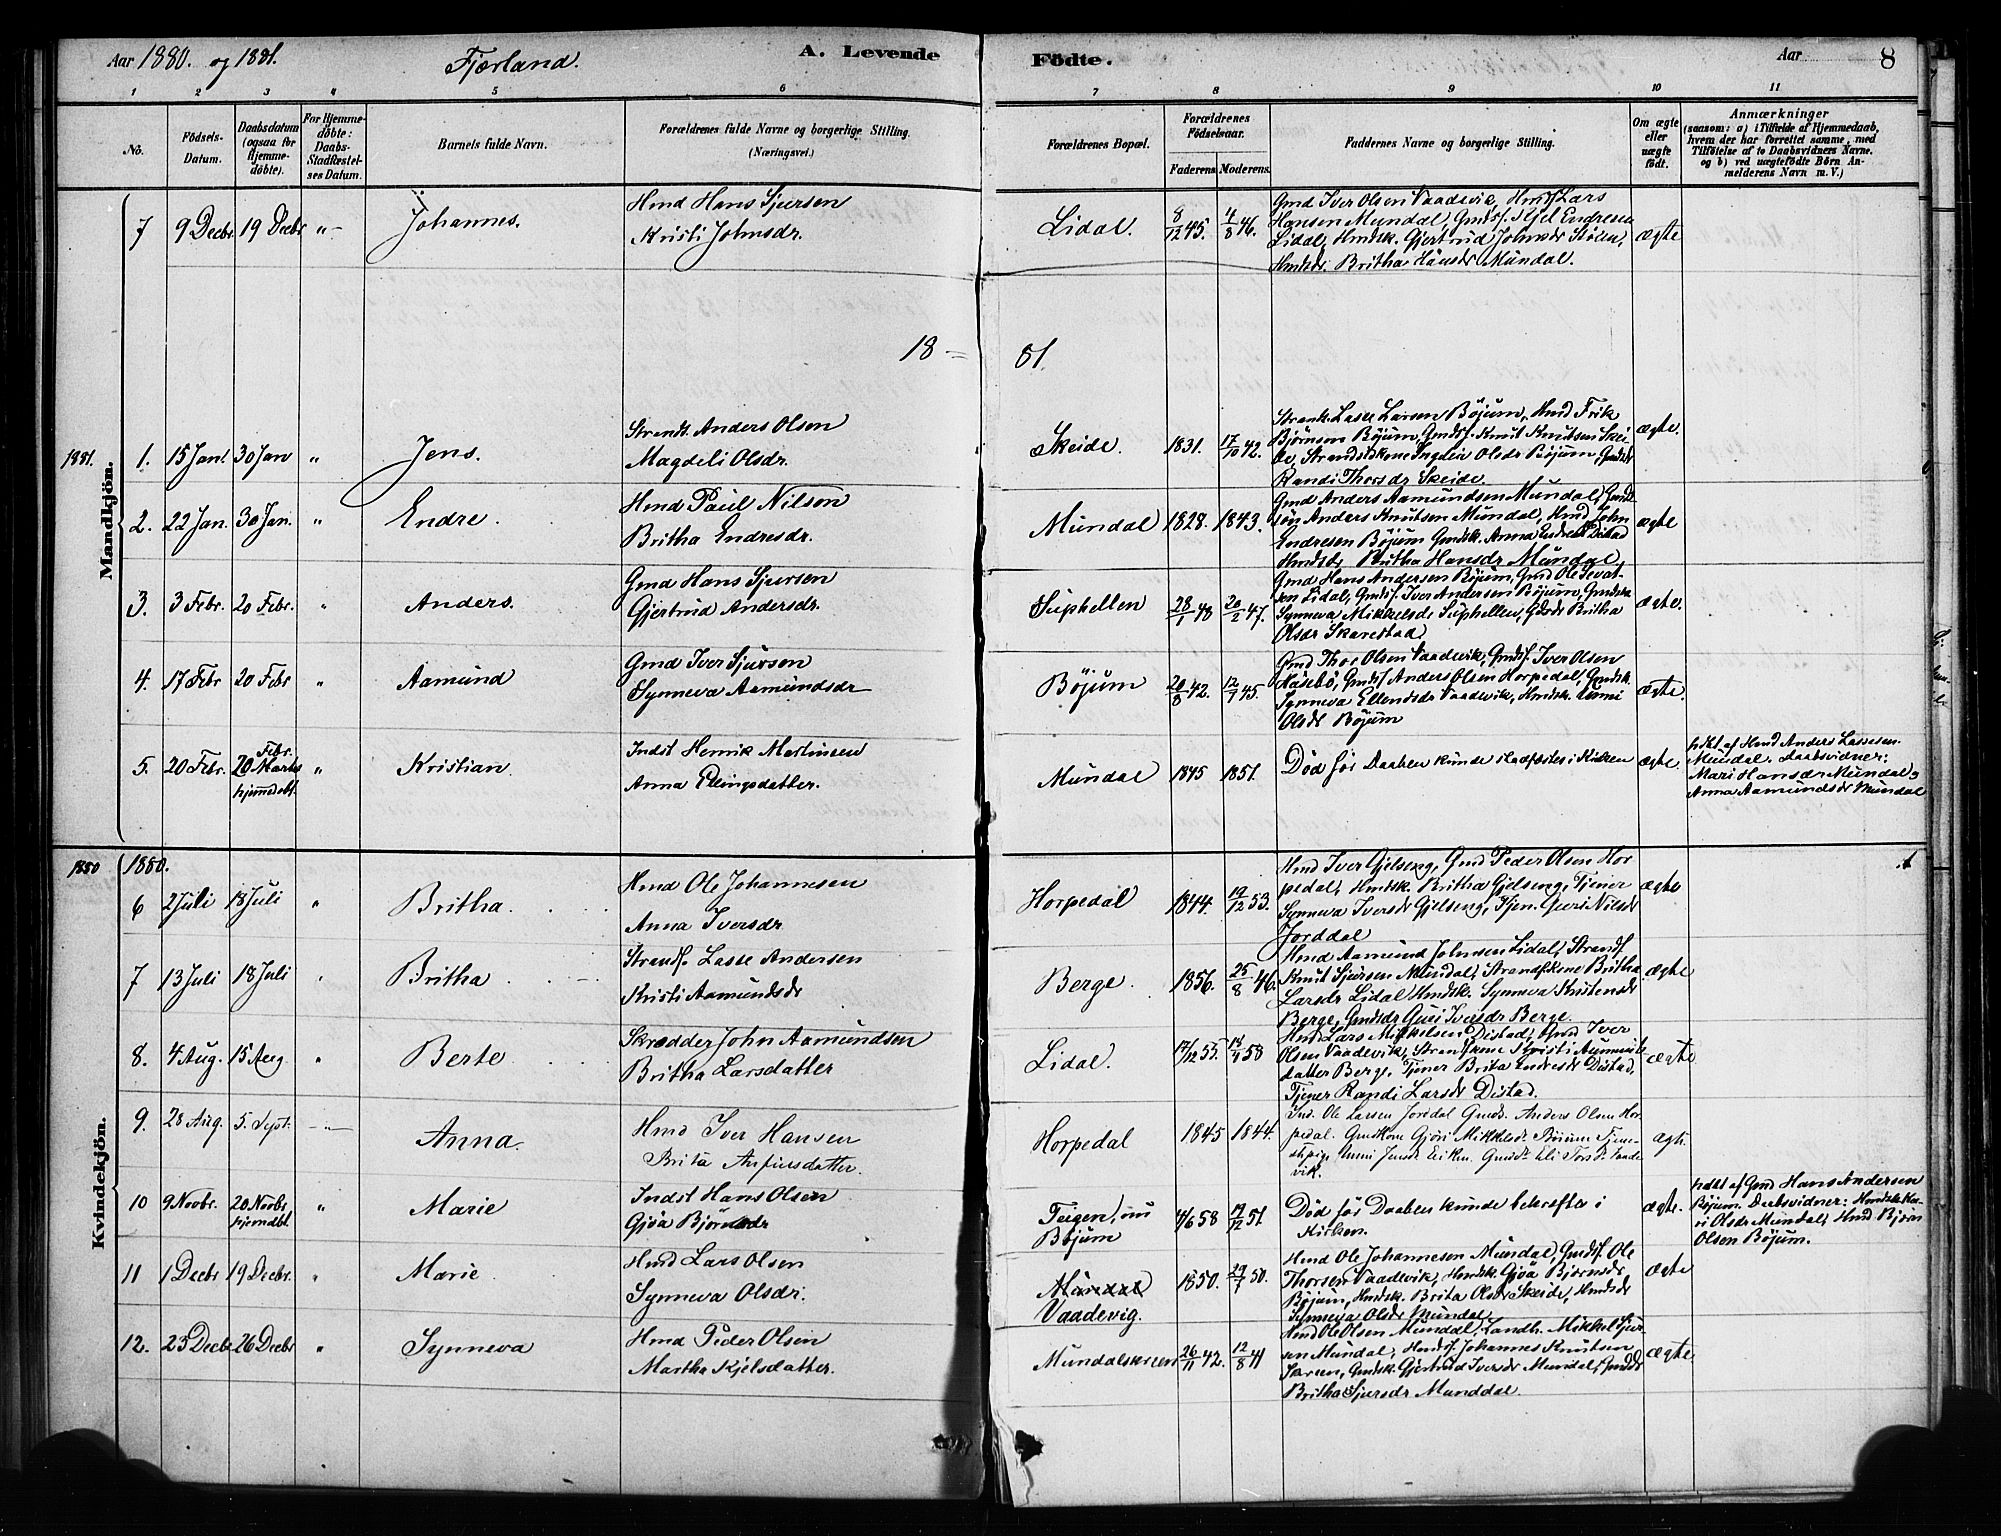 Aar 1880. og 1881.
Fjærland.
A. Levende
Födte.
Aar
8
1 2 3 4 5 6 7 8 9 10 11
No.
Födsels-
Datum.
Daabsdatum
(ogsaa for
Hjemme-
döbte).
For Hjemme-
döbte:
Daabs-
Stadfæstel-
ses Datum.
Barnets fulde Navn.
Forældrenes fulde Navne og borgerlige Stilling.
(Næringsvei.)
Forældrenes Bopæl.
Forældrenes
Födselsaar.
Faderens Moderens.
Faddernes Navne og borgerlige Stilling.
Om ægte
eller
uægte
født.
Anmærkninger
(saasom: a) i Tilfælde af Hjemmedaab,
hvem der har forrettet samme, med
Tilföielse af to Daabsvidners Navne.
og b) ved uægtefödte Börn An-
melderens Navn m. V.)
7 9 Decbr 19 Decbr „ Johannes.
Hmd Hans Sjursen
Kristi Johnsdr.
Lidal. 8/12 45. 4/8 46.
Gmd Iver Olsen Vaadevik, Hmdsf Lars
Hansen Mundal, Gmdsf. Kjel Endresen
Lidal, Hmdsk. Gjertrud Johnsdr Stölen,
Hmdsdr. Britha Hansdr Mundal.
ægte
18 — 81.
1881.
Mandkjön.
1. 15 Jan. 30 Jan „ Jens.
Strandt. Anders Olsen
Magdeli Olsdr.
Skeide. 1831. 17/10 42.
Strandt. Lasse Larsen Böjum, Hmd Erik
Björnson Böjum, Gmdsf. Knut Knutsen Skei-
de, Strandsidskone Ingelev Olsdr Böjum, Gmdsdr
Randi Thorsdr Skeide.
ægte.
2. 22 Jan. 30 Jan. „ Endre.
Hmd Paul Nilson
Britha Endresdr.
Mundal 1828. 1843.
Gmd Anders Aamundsen Mundal, Gmds-
sön Anders Knutsen Mundal, Hmd John
Endresen Böjum Gmdsk. Anna Endresdr Distad
Hmdsdr. Britha Hansdr Mundal
ægte
3. 3 Febr. 20 Febr. „ Anders.
Gmd Hans Sjursen
Gjertrud Andersdr.
Suphellen 28/1 48 20/2 47.
Gmd Hans Andersen Böjum, Gmd Ole Sevat-
sen Lidal, Gmdsf. Iver Andersen Böjum, Gmdsk
Synneva Mikkelsdr Suphellen, Gmdsdr Britha
Olsdr Skarestad
ægte.
4. 17 Febr 20 Febr „ Aamund
Gmd Iver Sjurson
Synneva Aamundsdr
Böjum 20/8 42. 12/7 45.
Gmd Thor Olsen Vaadevik, Gmdsf. Iver Olsen
Husebö, Gmdsf Anders Olsen Horpedal, Gmdsk.
Synneva Ellendsdr Vaadevik, Hmdsk.
Olsdr Böjum
ægte.
5. 20 Febr. 20 Febr. Marts hjemmedöbt „ Kristian.
Indst Henrik Martinsen
Anna Ellingsdatter.
Mundal 1845 1851.
Död för Daaben kunde stadfæstes i Kirken
ægte.
hdbt af Hmd Anders Lassesen
Mundal. Daabsvidner:
Mari Hansdr Mundal &
Anna Aamundsdr Mundal
1880
Kvindekjön.
1880.
6 2 Juli 18 Juli „ Britha.
Hmd Ole Johannesen
Anna Iversdr
Horpedal 1844. 19/12 53.
Hmd Iver Gjelseng, Gmd Peder Olsen Hor-
pedal, Hmdsk. Britha Gjelseng, Tjener
Synneva Iversdr Gjelseng, Tjen. Guri Nilsdr
Jorddal
ægte
7 13 Juli 18 Juli „ Britha
Strandf. Lasse Andersen
Kristi Aamundsdr
Berge. 1856. 25/8 46.
Hmd Aamund Johnsen Lidal, Strandf.
Knut Sjursen Mundal, Strandfkone Britha
Larsdr Lidal Hmdsk. Synneva Kristensdr
Berge, Gmdsdr Guri Iversdr Berge.
ægte
8. 4 Aug. 15 Aug. „ Berte
Skrædder John Aamundsen
Britha Larsdatter
Lidal. 17/12 55. 18/9 58
Hmd Lars Mikkelsen Distad, Gmd Iver
Olsen Vaadevik, Strandfkone Kristi Aamunds-
datter Berge, Tjener Brita Endresdr Distad,
Tjener Randi Larsdr Distad.
ægte
9. 28 Aug. 5. Sept. „ Anna.
Hmd Iver Hansen
Brita Anfinsdatter.
Horpedal 1845 1844.
Ind. Ole Larsen Jorddal Gmds. Anders Olsen Hor-
pedal. Gmdkone Gjöri Mikkelsdr. Böium Tjene-
stpige Jensdr. Gmdsdr. Eli Torsdr. Vaade-
vik.
ægt.
10 9 Novbr. 20 Novbr. hjemdbt. „ Marie
Indst Hans Olsen
Gjöa Björnsdr
Teigen, nu
Böjum 4/6 58 19/12 51.
Död för Daaben kunde bekræftes i
Kirken.
ægte.
hdbt af Gmd Hans Andersen
Böjum. Daabsvidner: Hmdsk Ka-
ri Olsdr Mundal, Hmd Björn
Olsen Böjum.
11 1 Decbr 19 Decbr. „ Marie
Hmd Lars Olsen
Synneva Olsdr.
Mundal
Vaadevig. 1850. 29/7 50.
Hmd Ole Johannesen Mundal, Gmdsf. Ole
Thorsen Vaadevik, Hmdsk. Gjöa Björnsdr
Böjum, Hmdsk. Brita Olsdr Skeide, Hmdsdr
Synneva Olsdr Mundal
ægte
12. 23 Decbr 26 Decbr „ Synneva
Hmd Peder Olsen
Martha Kjelsdatter.
Mundalskreen 26/11 42. 12/8 41
Hmd Ole Olsen Mundal, Landh. Mikkel Sjur-
sen Mundal, Hmdsf. Johannes Knutsen
Skreen, Gmdsk. Gjertrud Iversdr Mundal, Gmdsdr
Britha Sjursdr Munddal.
ægte